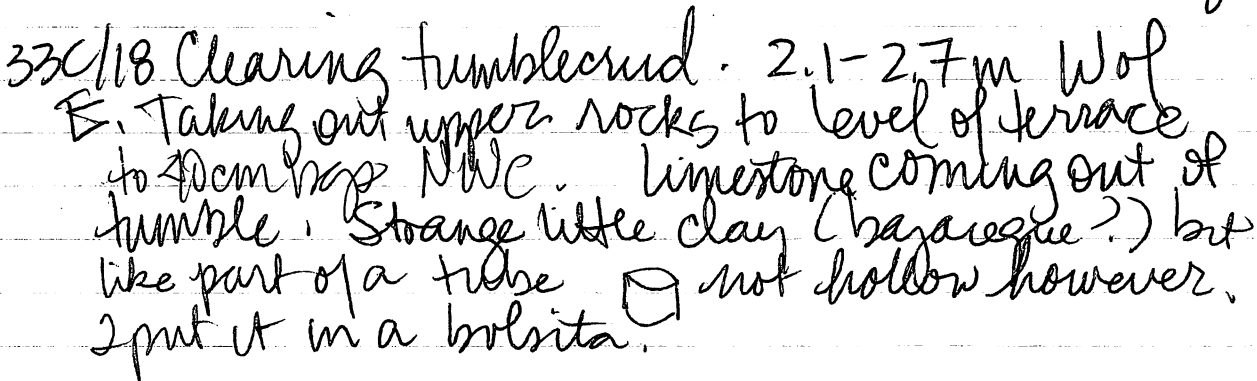 33C/18 Clearing tumblecrud. 2.1-2.7m W of
E. Taking out upper rocks to level of terrace
to 40cm bgs NWC. Limestone coming out of
tumble. Strange little clay (bajareque?) bit
like part of a tube not hollow however.
I put it in a bolsita.